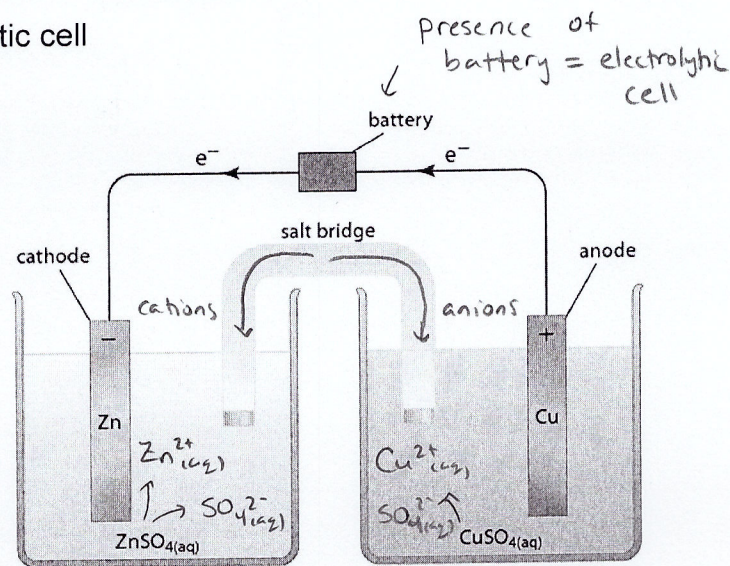 tic cell
presence of
battery = electrolytic
cell
battery
e⁻
e⁻
salt bridge
cathode
anode
cations
anions
−
+
Zn
Cu
Zn²⁺(aq)
Cu²⁺(aq)
SO₄²⁻(aq)
SO₄²⁻(aq)
ZnSO₄(aq)
CuSO₄(aq)